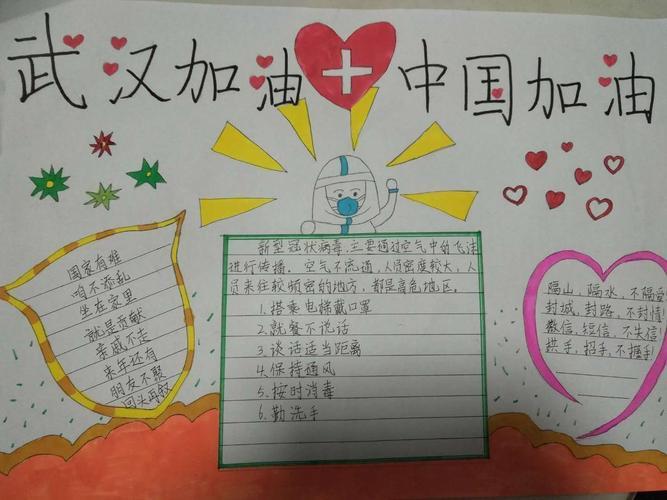 武汉加油中国加油
国家有难
咱不添乱
坐在家里
就是贡献
亲戚不走
来年还有
朋友不聚
回头再叙
新型冠状病毒,主要通过空气中的飞沫
进行传播。空气不流通,人员密度较大,人
员来往较频密的地方,都是高危地区。
1.搭乘电梯戴口罩
2.就餐不说话
3.谈话适当距离
4.保持通风
5.按时消毒
6.勤洗手
隔山,隔水,不隔爱
封城,封路,不封情
微信,短信,不失信
拱手,招手,不握手!